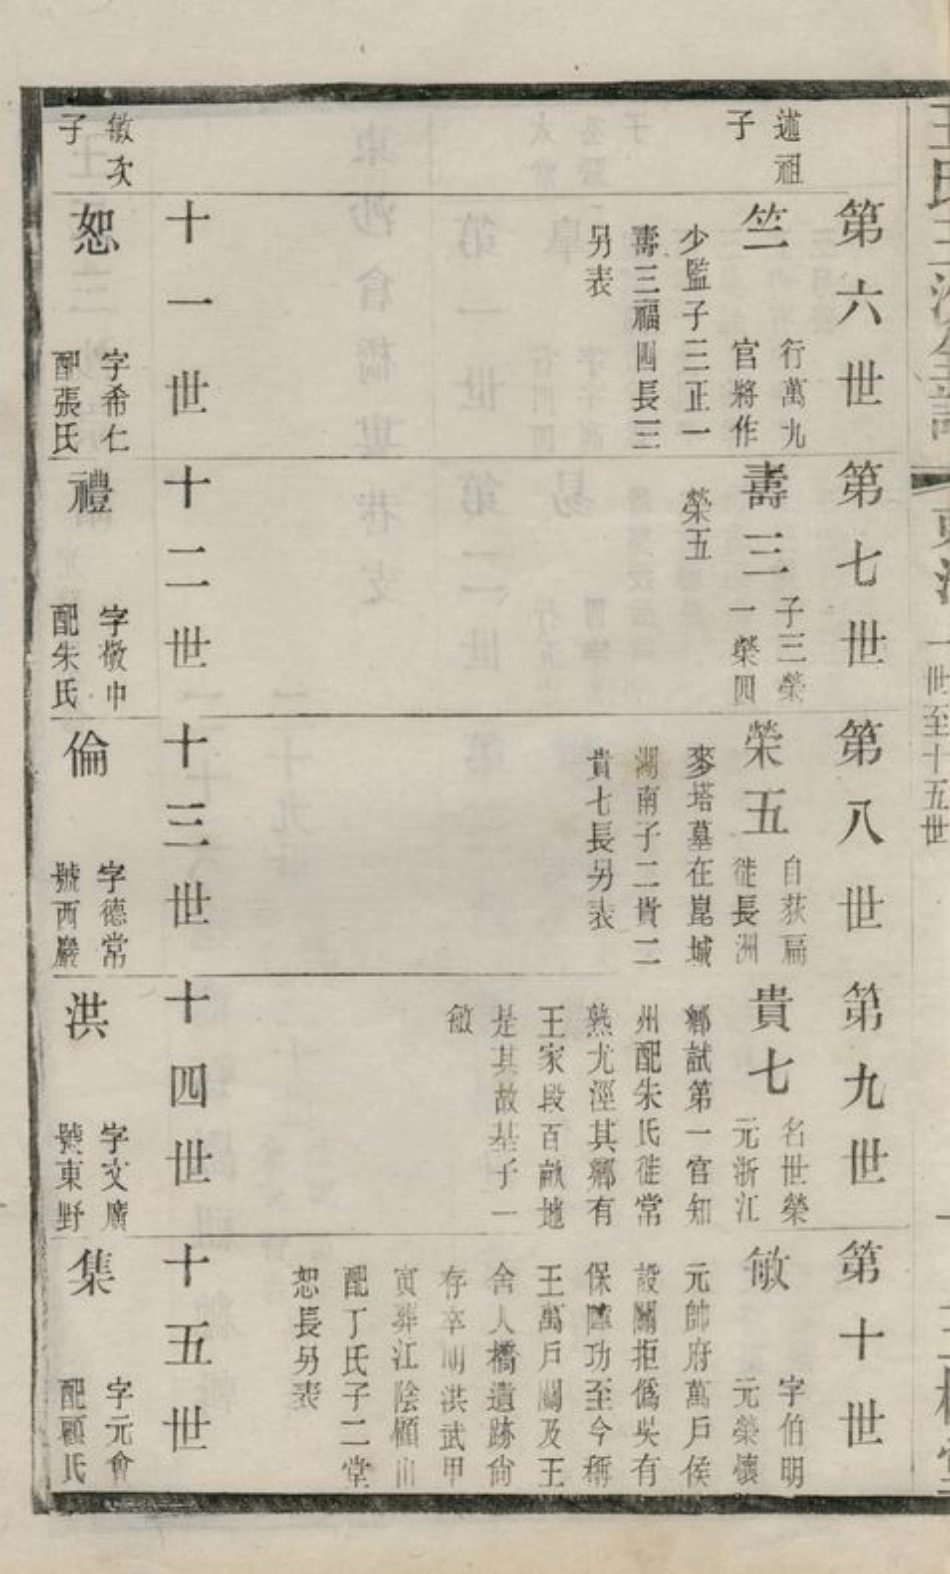 述祖
子
第六世
竺
行萬九
官將作
少監子三正一
壽三福四長三
另表
第七世
壽三
子三榮
一榮四
榮五
第八世
榮五
自荻扁
徙長洲
麥塔墓在崑城
湖南子二貴二
貴七長另表
第九世
貴七
名世榮
元浙江
鄉試第一官知
州配朱氏徙常
熟尤涇其鄉有
王家段百畝地
是其故基子一
敏
第十世
敏
字伯明
元榮懷
元帥府萬戶侯
設關拒僞吳有
保障功至今稱
王萬戶關及王
舍人橋遺跡尙
存卒明洪武甲
寅葬江陰顧山
配丁氏子二堂
恕長另表
敏次
子
十一世
恕
字希仁
配張氏
十二世
禮
字敬中
配朱氏
十三世
倫
字德常
號西巖
十四世
洪
字文廣
號東野
十五世
集
字元會
配顧氏
一世至十五世